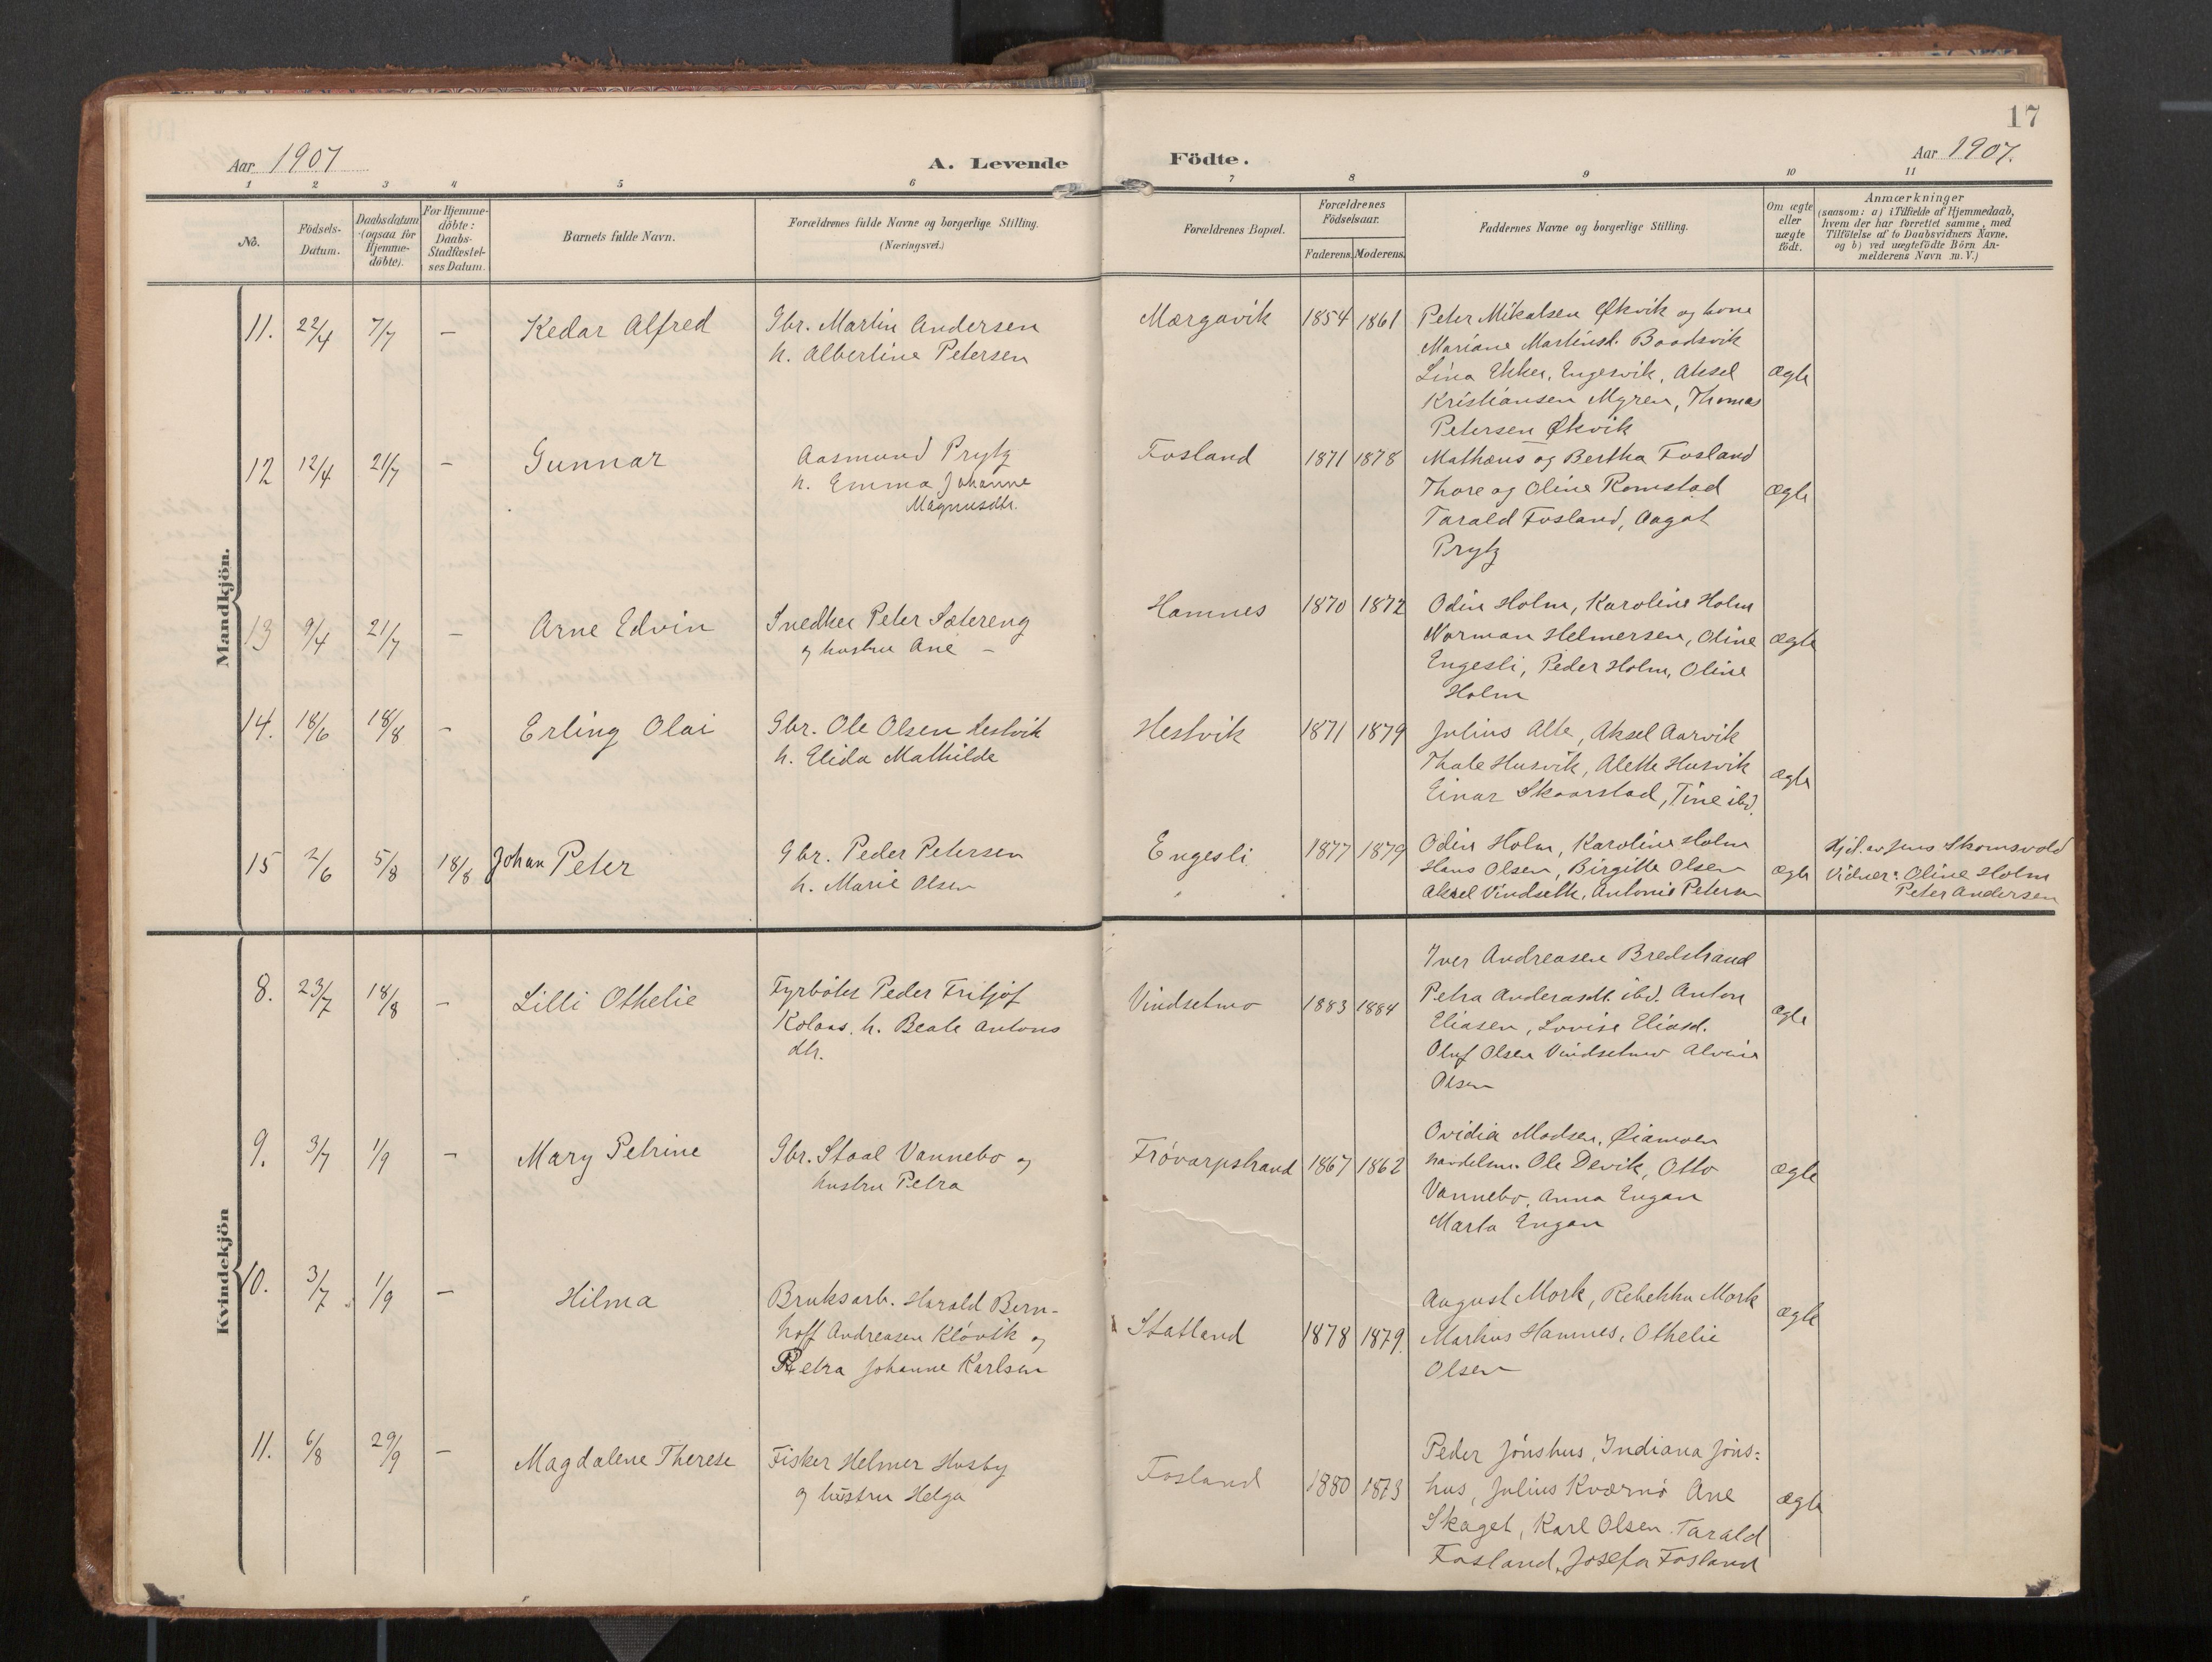 17
Aar 1907
A. Levende
Födte.
Aar 1907.
1 2 3 4 5 6 7 8 9 10 11
No.
Födsels-
Datum.
Daabsdatum
(ogsaa for
Hjemme-
döbte).
For Hjemme-
döbte:
Daabs-
Stadfæstel-
ses Datum.
Barnets fulde Navn.
Forældrenes fulde Navne og borgerlige Stilling.
(Næringsvei.)
Forældrenes Bopæl.
Forældrenes
Födselsaar.
Faderens. Moderens.
Faddernes Navne og borgerlige Stilling.
Om ægte
eller
uægte
født.
Anmærkninger
(saasom: a) i Tilfælde af Hjemmedaab,
hvem der har forrettet samme, med
Tilföielse af to Daabsvidners Navne,
og b) ved uægtefödte Börn An-
melderens Navn m. V.)
Mandkjön.
11. 22/4 7/7 – Kedar Alfred
Gbr. Martin Andersen
h. Albertine Petersen
Mærgavik 1854 1861
Peter Mikalsen Økvik og kone
Mariane Martinsd. Baadsvik
Lina Ekker, Engesvik, Aksel
Kristiansen Myren, Thomas
Petersen Økvik
ægte
12 12/4 21/7 – Gunnar
Aasmund Prytz
h. Emma Johanne
Magnusdtr.
Fosland 1871 1878
Mathæus og Bertha Fosland
Thore og Oline Romstad
Tarald Fosland, Aagot
Prytz
ægte
13 9/4 21/7 – Arne Edvin
Snedker Peter Sætereng
og hustru Ane –
Hamnes 1870 1872
Odin Holm, Karoline Holm
Norman Helmersen, Oline
Engesli, Peder Holm, Oline
Holm
ægte
14. 18/6 18/8 – Erling Olai
Gbr. Ole Olsen Hestvik
h. Elida Mathilde
Hestvik 1871 1879
Julius Alte, Aksel Aarvik
Thale Husvik, Alette Husvik
Einar Skaarstad, Tine ibd.
ægte
15 2/6 5/8 18/8 Johan Peter
Gbr. Peder Petersen
h. Marie Olsen
Engesli 1877 1879
Odin Holm, Karoline Holm
Hans Olsen, Birgitte Olsen
Aksel Vindseth, Antonie Petersen
ægte
Hjd. av Jens Skomsvold
Vidner: Oline Holm
Peter Andersen
Kvindekjön
8. 23/7 18/8 – Lilli Othelie
Fyrböter Peder Fritjof
Kolaas. h. Beate Antons
dtr.
Vindsetmo 1883 1884
Iver Andreasen Bredstrand
Petra Anderasdt. ibd. Anton
Eliasen, Lovise Eliasd.
Oluf Olsen Vindsetmo Alvine
Olsen
ægte
9. 3/7 1/9 – Mary Petrine
Gbr. Staal Vannebo og
hustru Petra
Frövarpstrand 1867 1862
Ovidia Madsen, Øiamoen
handelsm. Ole Devik, Otto
Vannebo, Anna Engan
Marta Engan
ægte
10. 3/7 1/9 – Hilma
Bruksarb. Harald Bern-
hoff Andreasen Klövik og
Petra Johanne Karlsen
Statland 1878 1879.
August Mork, Rebekka Mork
Markus Hamnes, Othelie
Olsen
ægte
11. 6/8 29/9 – Magdalene Therese
Fisker Helmer Husby
og hustru Helga
Fosland 1880 1873
Peder Jönshus, Indiana Jöns=
hus, Julius Kværnö Ane
Skaget, Karl Olsen. Tarald
Fosland, Josefa Fosland
ægte